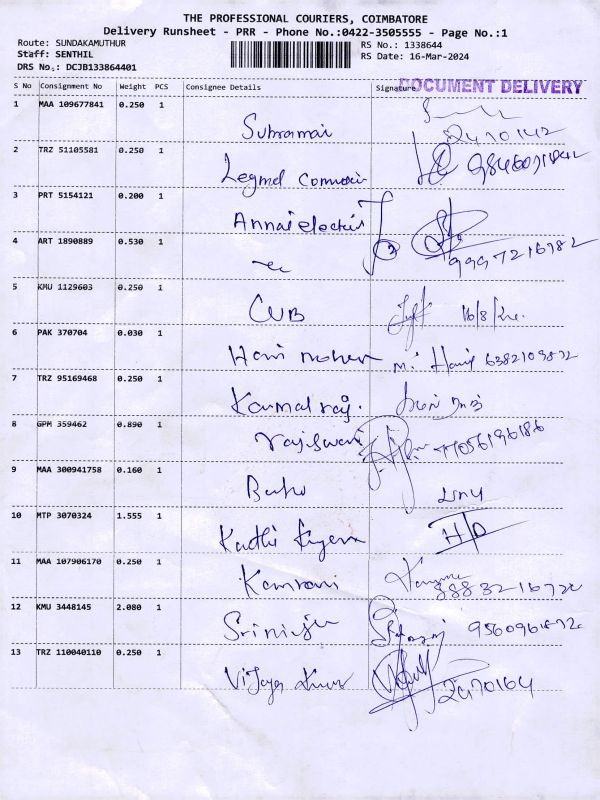 THE PROFESSIONAL COURIERS, COIMBATORE
Delivery Runsheet - PRR - Phone No.:0422-3505555 - Page No.:1
Route: SUNDAKAMUTHUR
RS No.: 1338644
Staff: SENTHIL
RS Date: 16-Mar-2024
DRS No.: DCJB133864401
DOCUMENT DELIVERY
S No Consignment No Weight PCS Consignee Details Signature
1 MAA 109677841 0.250 1
Subramai 2470142
2 TRZ 51105581 0.250 1
Legmd
3 PRT 5154121 0.200 1
Annai electric
4 ART 1890889 0.530 1
9997216982
5 KMU 1129603 0.250 1
CUB
6 PAK 370704 0.030 1
Hari mohan
7 TRZ 95169468 0.250 1
Kamalraj.
8 GPM 359462 0.890 1
rajiswari 77056196186
9 MAA 300941758 0.160 1
Babu பாபு
10 MTP 3070324 1.555 1
Kadhi H/O
11 MAA 107906170 0.250 1
Kamrani
12 KMU 3448145 2.080 1
Srinivju
13 TRZ 110040110 0.250 1
Vijaya Kumar 2470164